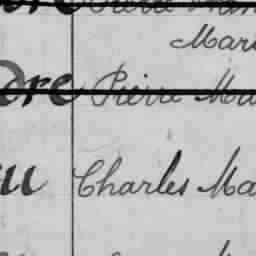 Pierre
Mar
ore Pierre Ma
u Charles Ma